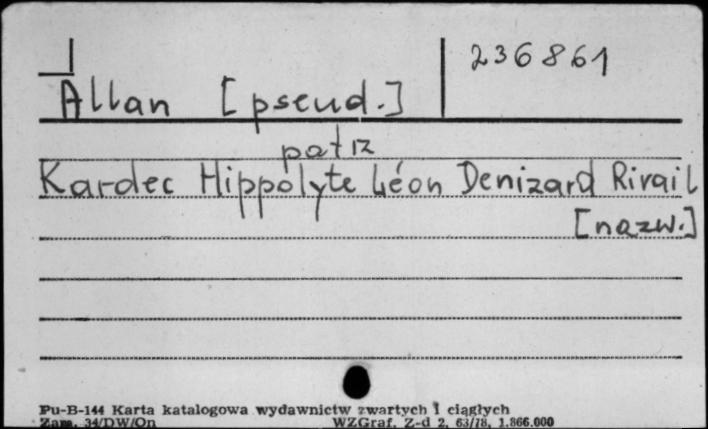 236861
Allan [pseud.]
patrz
Kardec Hippolyte Léon Denizard Rivail
[nazw.]
Pu-B-144 Karta katalogowa wydawnictw zwartych i ciągłych
Zam. 34/DW/On WZGraf. Z-d 2, 63/78, 1.866.000